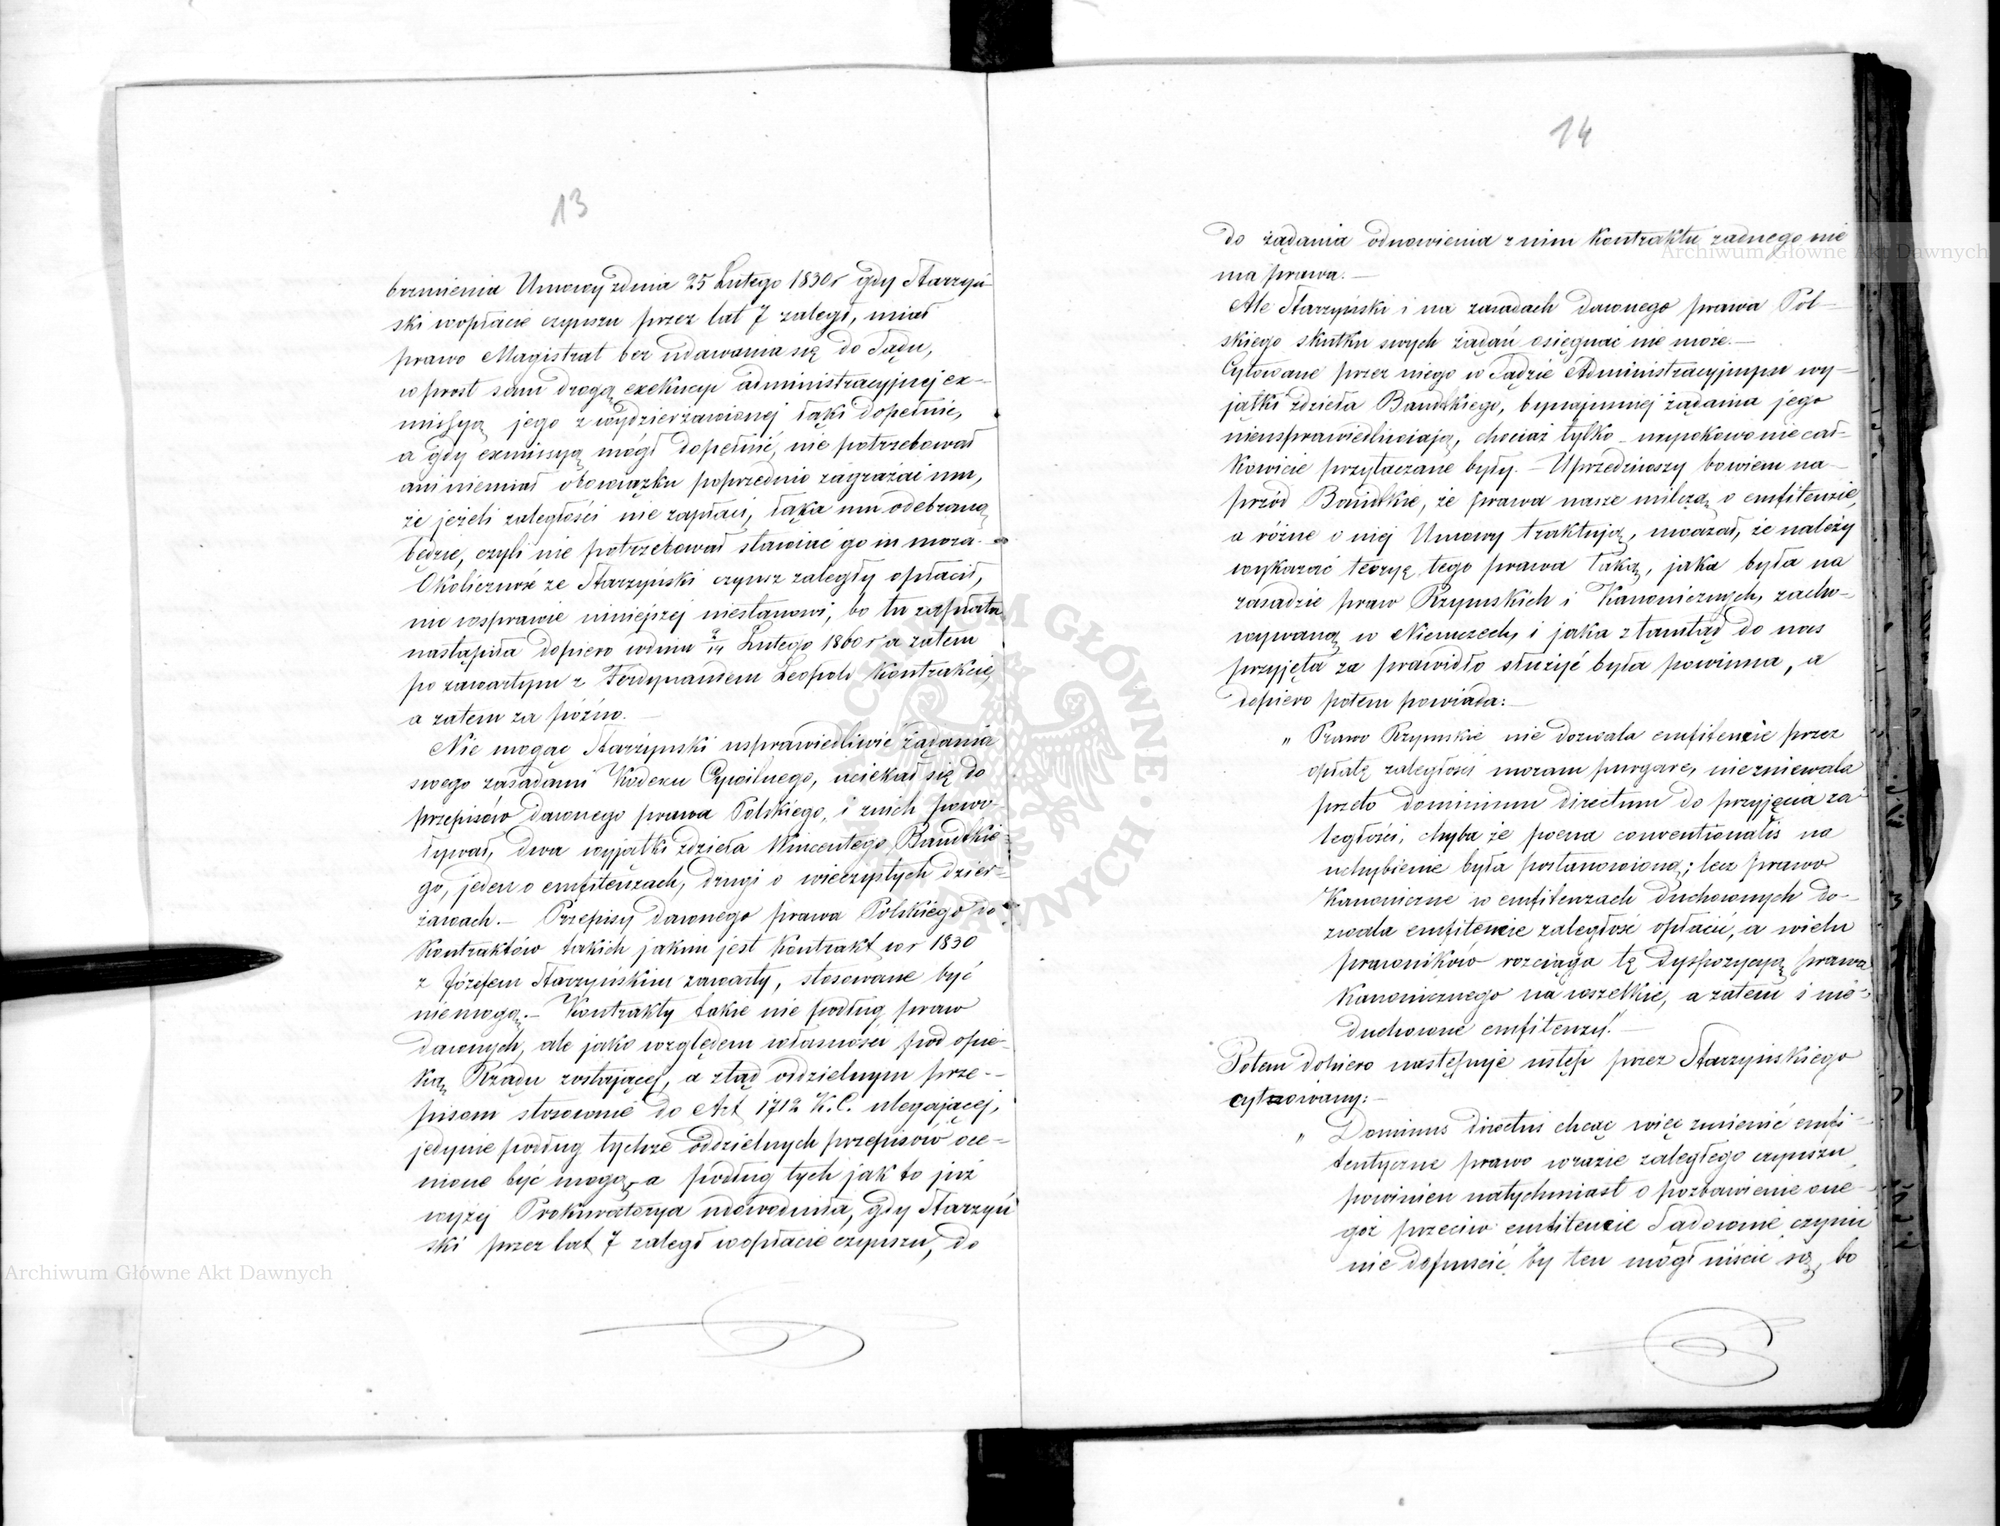 13
brzmienia Umowy zdnia 25 Lutego 1830 r gdy Starzyń-
ski wopłacie czynszu przez lat 7 zaległ, miał
prawo Magistrat bez udawania się do Sądu,
wprost sam drogą exekucyi administracyjnej ex-
missyą jego z wydzierżawionej łąki dopełnić,
a gdy exmissyą mógł dopełnić, nie potrzebował
ani niemiał obowiązku poprzednio zagrażać mu,
że jeżeli zaległości nie zapłaci, łąka mu odebraną
będzie, czyli nie potrzebował stawiać go in mora.
Okoliczność że Starzyński czynsz zaległy opłacił,
nic wsprawie niniejszej niestanowi, bo tu zapłata
nastąpiła dopiero wdniu 2/14 Lutego 1860 r a zatem
po zawartym z Ferdynandem Leopold Kontrakcie,
a zatem za późno. —
Nie mogąc Starzyński usprawiedliwić żądania
swego zasadami Kodexu Cywilnego, uciekał się do
przepisów dawnego prawa Polskiego, i znich powo-
ływał, dwa wyjątki zdzieła Wincentego Bandtkie-
go, jeden o emfiteuzach, drugi o wieczystych dzier-
żawach. — Przepisy dawnego prawa Polskiego do
Kontraktów takich jakim jest Kontrakt w r 1830
z Józefem Starzyńskim zawarty, stosowane być
niemogą. — Kontrakty takie nie podług praw
dawnych, ale jako względem własności pod opie-
ką Rządu zostającej, a ztąd oddzielnym prze-
pisom stosownie do Art 1712 K.C. ulegającej,
jedynie podług tychże oddzielnych przepisów oce-
nione być mogą, a podług tych jak to już
wyżej Prokuratorya udowodniła, gdy Starzyń
ski przez lat 7 zaległ wopłacie czynszu, do
14
do żądania odnowienia z nim Kontraktu żadnego nie
ma prawa. —
Ale Starzyński i na zasadach dawnego prawa Pol-
skiego skutku swych żądań osięgnąć nie może. —
Cytowane przez niego w Sądzie Administracyjnym wy-
jątki zdzieła Bandtkiego, bynajmniej żądania jego
nieusprawiedliwiają, chociaż tylko urywkowo niecał-
kowicie przytaczane były. — Uprzedziwszy bowiem na-
przód Bandtkie, że prawa nasze milczą o emfiteuzie,
a różne o niej Umowy traktują, uważał, że należy
wykazać teoryę tego prawa taką, jaka była na
zasadzie praw Rzymskich i Kanonicznych, zacho-
wywaną w Niemczech, i jaka ztamtąd do nas
przyjęta za prawidło służyć była powinna, a
dopiero potem powiada: —
„ Prawo Rzymskie nie dozwala emfiteucie przez
opłatę zaległości moram purgare, nie zniewala
przeto dominium directum do przyjęcia za-
ległości, chyba że poena conventionalis na
uchybienie była postanowioną; lecz prawo
Kanoniczne w emfiteuzach duchownych do-
zwala emfiteucie zaległość opłacić, a wielu
prawników rozciąga tę dyspozycyą prawa
Kanonicznego na wszelkie, a zatem i nie-
duchowne emfiteuzy." —
Potem dopiero następuje ustęp przez Starzyńskiego
cytowany: —
„ Dominus directus chcąc więc zmienić emfi-
teutyczne prawo wrazie zaległego czynszu
powinien natychmiast o pozbawienie one-
goż przeciw emfiteucie Sądownie czynić
nie dopuścić by ten mógł uiścić się, bo
Archiwum Główne Akt Dawnych
Archiwum Główne Akt Dawnych
ARCHIWUM GŁÓWNE AKT DAWNYCH